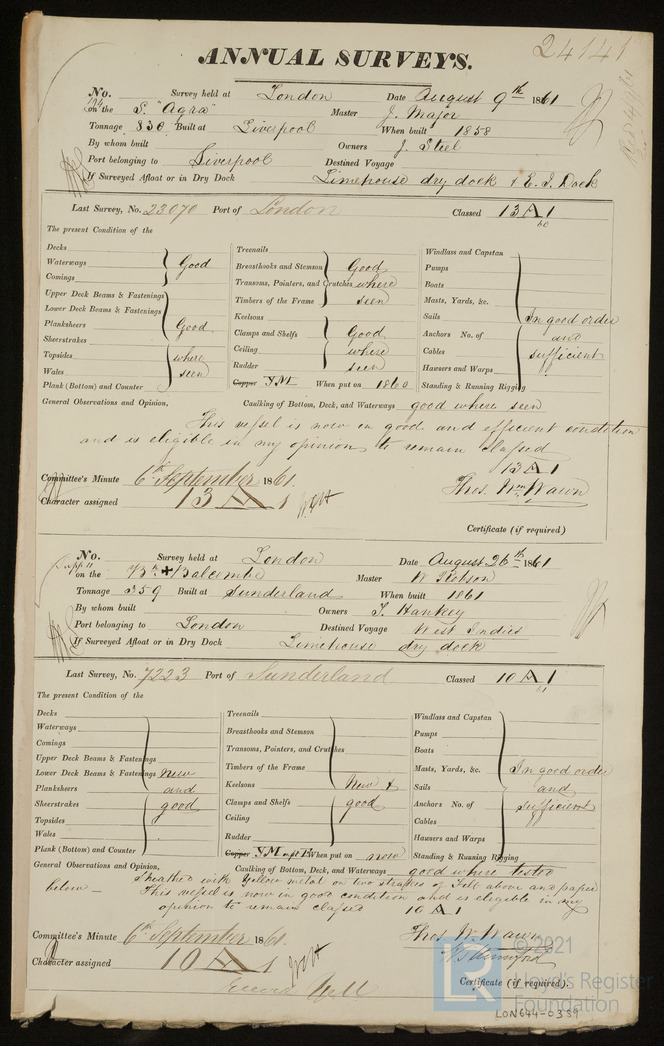 24141
ANNUAL SURVEYS.
No. Survey held at London Date August 9th 1861
on the S. "Agra" Master J. Major
Tonnage 830 Built at Liverpool When built 1858
By whom built Owners J. Steel
Port belonging to Liverpool Destined Voyage
If Surveyed Afloat or in Dry Dock Limehouse dry dock & E. I. Dock
Last Survey, No. 23070 Port of London Classed 13 A 1
60
The present Condition of the
Decks
Waterways
Comings
Good
Upper Deck Beams & Fastenings
Lower Deck Beams & Fastenings
Planksheers
Sheerstrakes
Topsides
Wales
Plank (Bottom) and Counter
Good
where
seen
Treenails
Breasthooks and Stemson
Transoms, Pointers, and Crutches
Timbers of the Frame
Good
where
seen
Keelsons
Clamps and Shelfs
Ceiling
Rudder
Good
where
seen
Copper YM When put on 1860
Windlass and Capstan
Pumps
Boats
Masts, Yards, &c.
Sails
Anchors No. of
Cables
Hawsers and Warps
Standing & Running Rigging
In good order
and
sufficient
General Observations and Opinion, Caulking of Bottom, Deck, and Waterways good where seen
This vessel is now in good and efficient condition
and is eligible in my opinion to remain classed
13 A 1
Committee's Minute 6th September 1861.
Thos. Wm Wawn
Character assigned 13 A 1
Certificate (if required)
No. Survey held at London Date August 26th 1861
on the Bk Balcombe Master W Hobson
Tonnage 359 Built at Sunderland When built 1861
By whom built Owners T. Hankey
Port belonging to London Destined Voyage West Indies
If Surveyed Afloat or in Dry Dock Limehouse dry dock
Last Survey, No. 7223 Port of Sunderland Classed 10 A 1
61
The present Condition of the
Decks
Waterways
Comings
Upper Deck Beams & Fastenings
Lower Deck Beams & Fastenings
Planksheers
Sheerstrakes
Topsides
Wales
Plank (Bottom) and Counter
New
and
good
Treenails
Breasthooks and Stemson
Transoms, Pointers, and Crutches
Timbers of the Frame
Keelsons
Clamps and Shelfs
Ceiling
Rudder
New &
good
Copper YM When put on now
Windlass and Capstan
Pumps
Boats
Masts, Yards, &c.
Sails
Anchors No. of
Cables
Hawsers and Warps
Standing & Running Rigging
In good order
and
sufficient
General Observations and Opinion, Caulking of Bottom, Deck, and Waterways good where tested
Sheathed with Yellow metal on two strakes of Felt above and paper
below — This vessel is now in good condition and is eligible in my
opinion to remain classed 10 A 1
Committee's Minute 6th September 1861.
Thos W Wawn
Character assigned 10 A 1
Certificate (if required).
© 2021
LR
Lloyd's Register
Foundation
LON644-0339